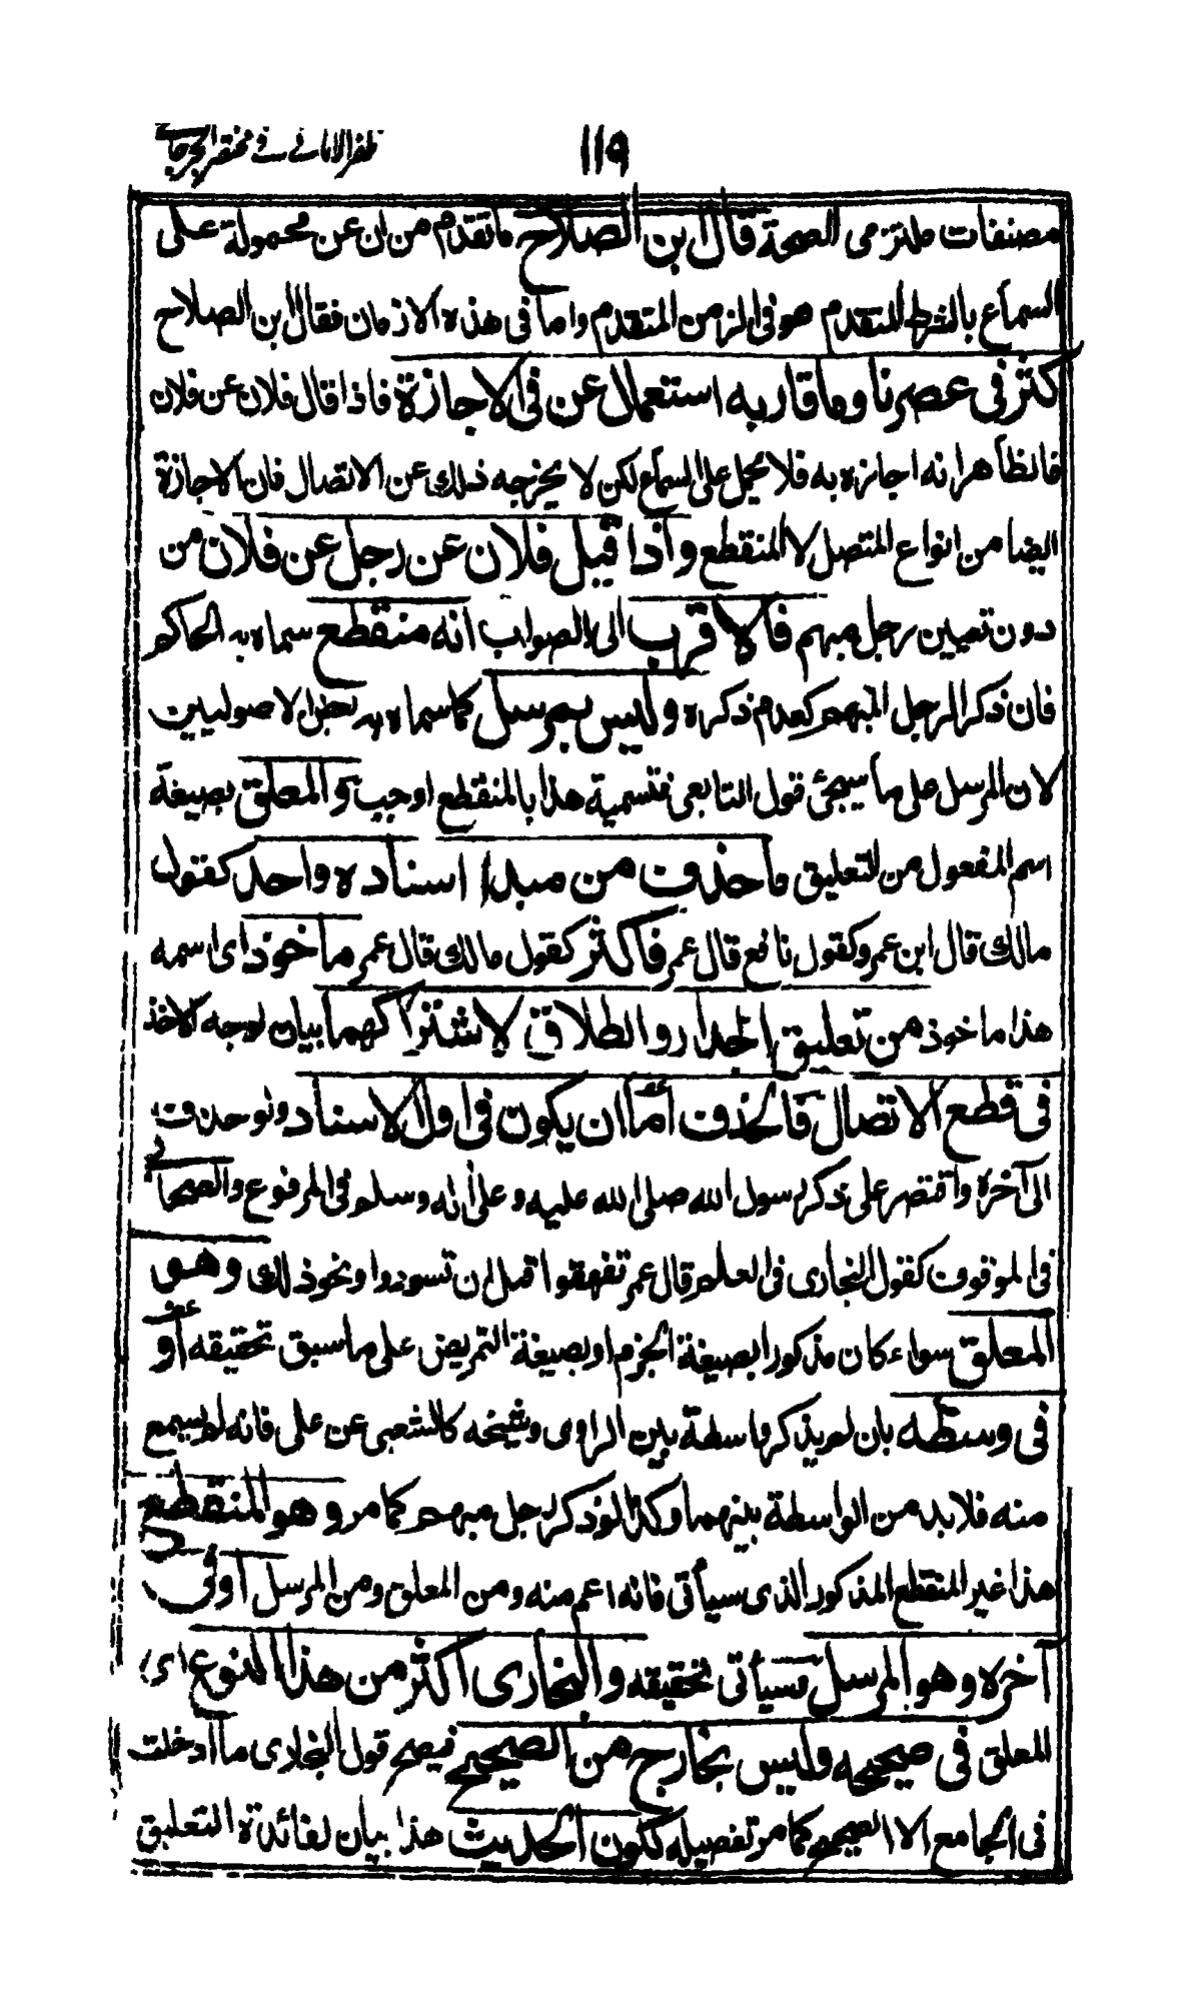 ظفر الامانى فى مختصر الجرجانى
١١٩
مصنفات ملتزمى الصحة قال ابن الصلاح ما تقدم من ان عن محمولة على
السماع بالشرط المتقدم هو فى الزمن المتقدم واما فى هذه الازمان فقال ابن الصلاح
كثر فى عصرنا وما قاربه استعمال عن فى الاجازة فاذا قال فلان عن فلان
فالظاهر انه اجازه به فلا يحمل على السماع لكن لا يخرجه ذلك عن الاتصال فان الاجازة
ايضا من انواع المتصل لا المنقطع واذا قيل فلان عن رجل عن فلان من
دون تعيين رجل مبهم فالاقرب الى الصواب انه منقطع سماه به الحاكم
فان ذكر الرجل المبهم كعدم ذكره وليس بمرسل كما سماه به بعض الاصوليين
لان المرسل على ما سيجئ قول التابعى فتسمية هذا بالمنقطع اوجب والمعلق بصيغة
اسم المفعول من التعليق ما حذف من مبدإ اسناده واحد كقول
مالك قال ابن عمر وكقول نافع قال عمر فاكثر كقول مالك قال عمر ماخوذ اى اسمه
هذا ماخوذ من تعليق الجدار والطلاق لاشتراكهما بيان لوجه الاخذ
فى قطع الاتصال فالحذف اما ان يكون فى اول الاسناد ولو حذف
الى آخره واقتصر على ذكر رسول الله صلى الله عليه وعلى اله وسلم فى المرفوع والصحابى
فى الموقوف كقول البخارى فى العلم قال عمر تفهقوا قبل ان تسودوا ونحو ذلك وهو
المعلق سواء كان مذكورا بصيغة الجزم او بصيغة التمريض على ما سبق تحقيقه او
فى وسطه بان لم يذكر واسطة بين الراوى وشيخه كالشعبى عن على فانه لم يسمع
منه فلا بد من الواسطة بينهما وكذا لو ذكر رجل مبهم كما مر وهو المنقطع
هذا غير المنقطع المذكور الذى سيأتى فانه اعم منه ومن المعلق ومن المرسل او فى
آخره وهو المرسل سيأتى تحقيقه والبخارى اكثر من هذا النوع اى
المعلق فى صحيحه وليس بخارج من الصحيح فيصح قول البخارى ما ادخلت
فى الجامع الا الصحيح كما مر تفصيله لكون الحديث هذا بيان لفائدة التعليق